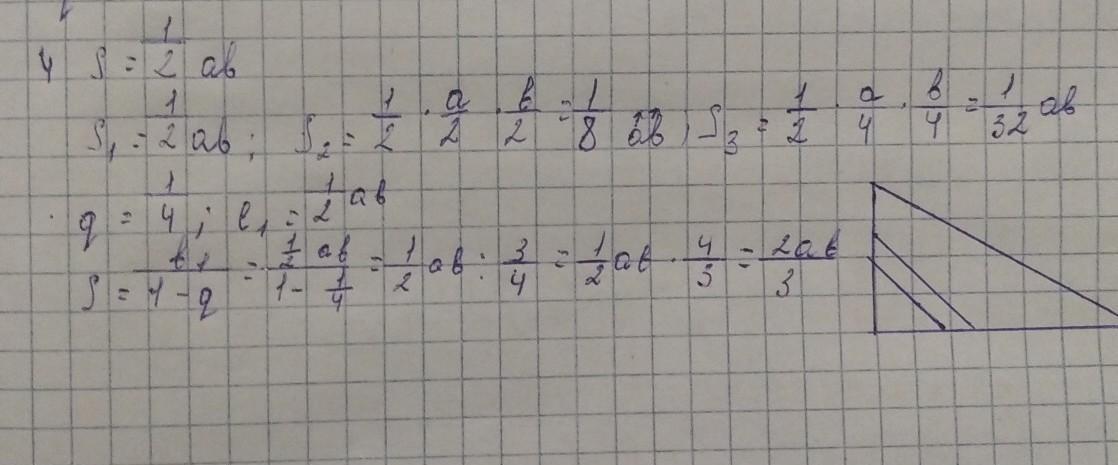 4 S = 1/2 ab
S₁ = 1/2 ab; S₂ = 1/2 · a/2 · b/2 = 1/8 ab, S₃ = 1/2 · a/4 · b/4 = 1/32 ab
q = 1/4; b₁ = 1/2 ab
S = b₁/(1-q) = (1/2 ab)/(1 - 1/4) = 1/2 ab : 3/4 = 1/2 ab · 4/3 = 2ab/3